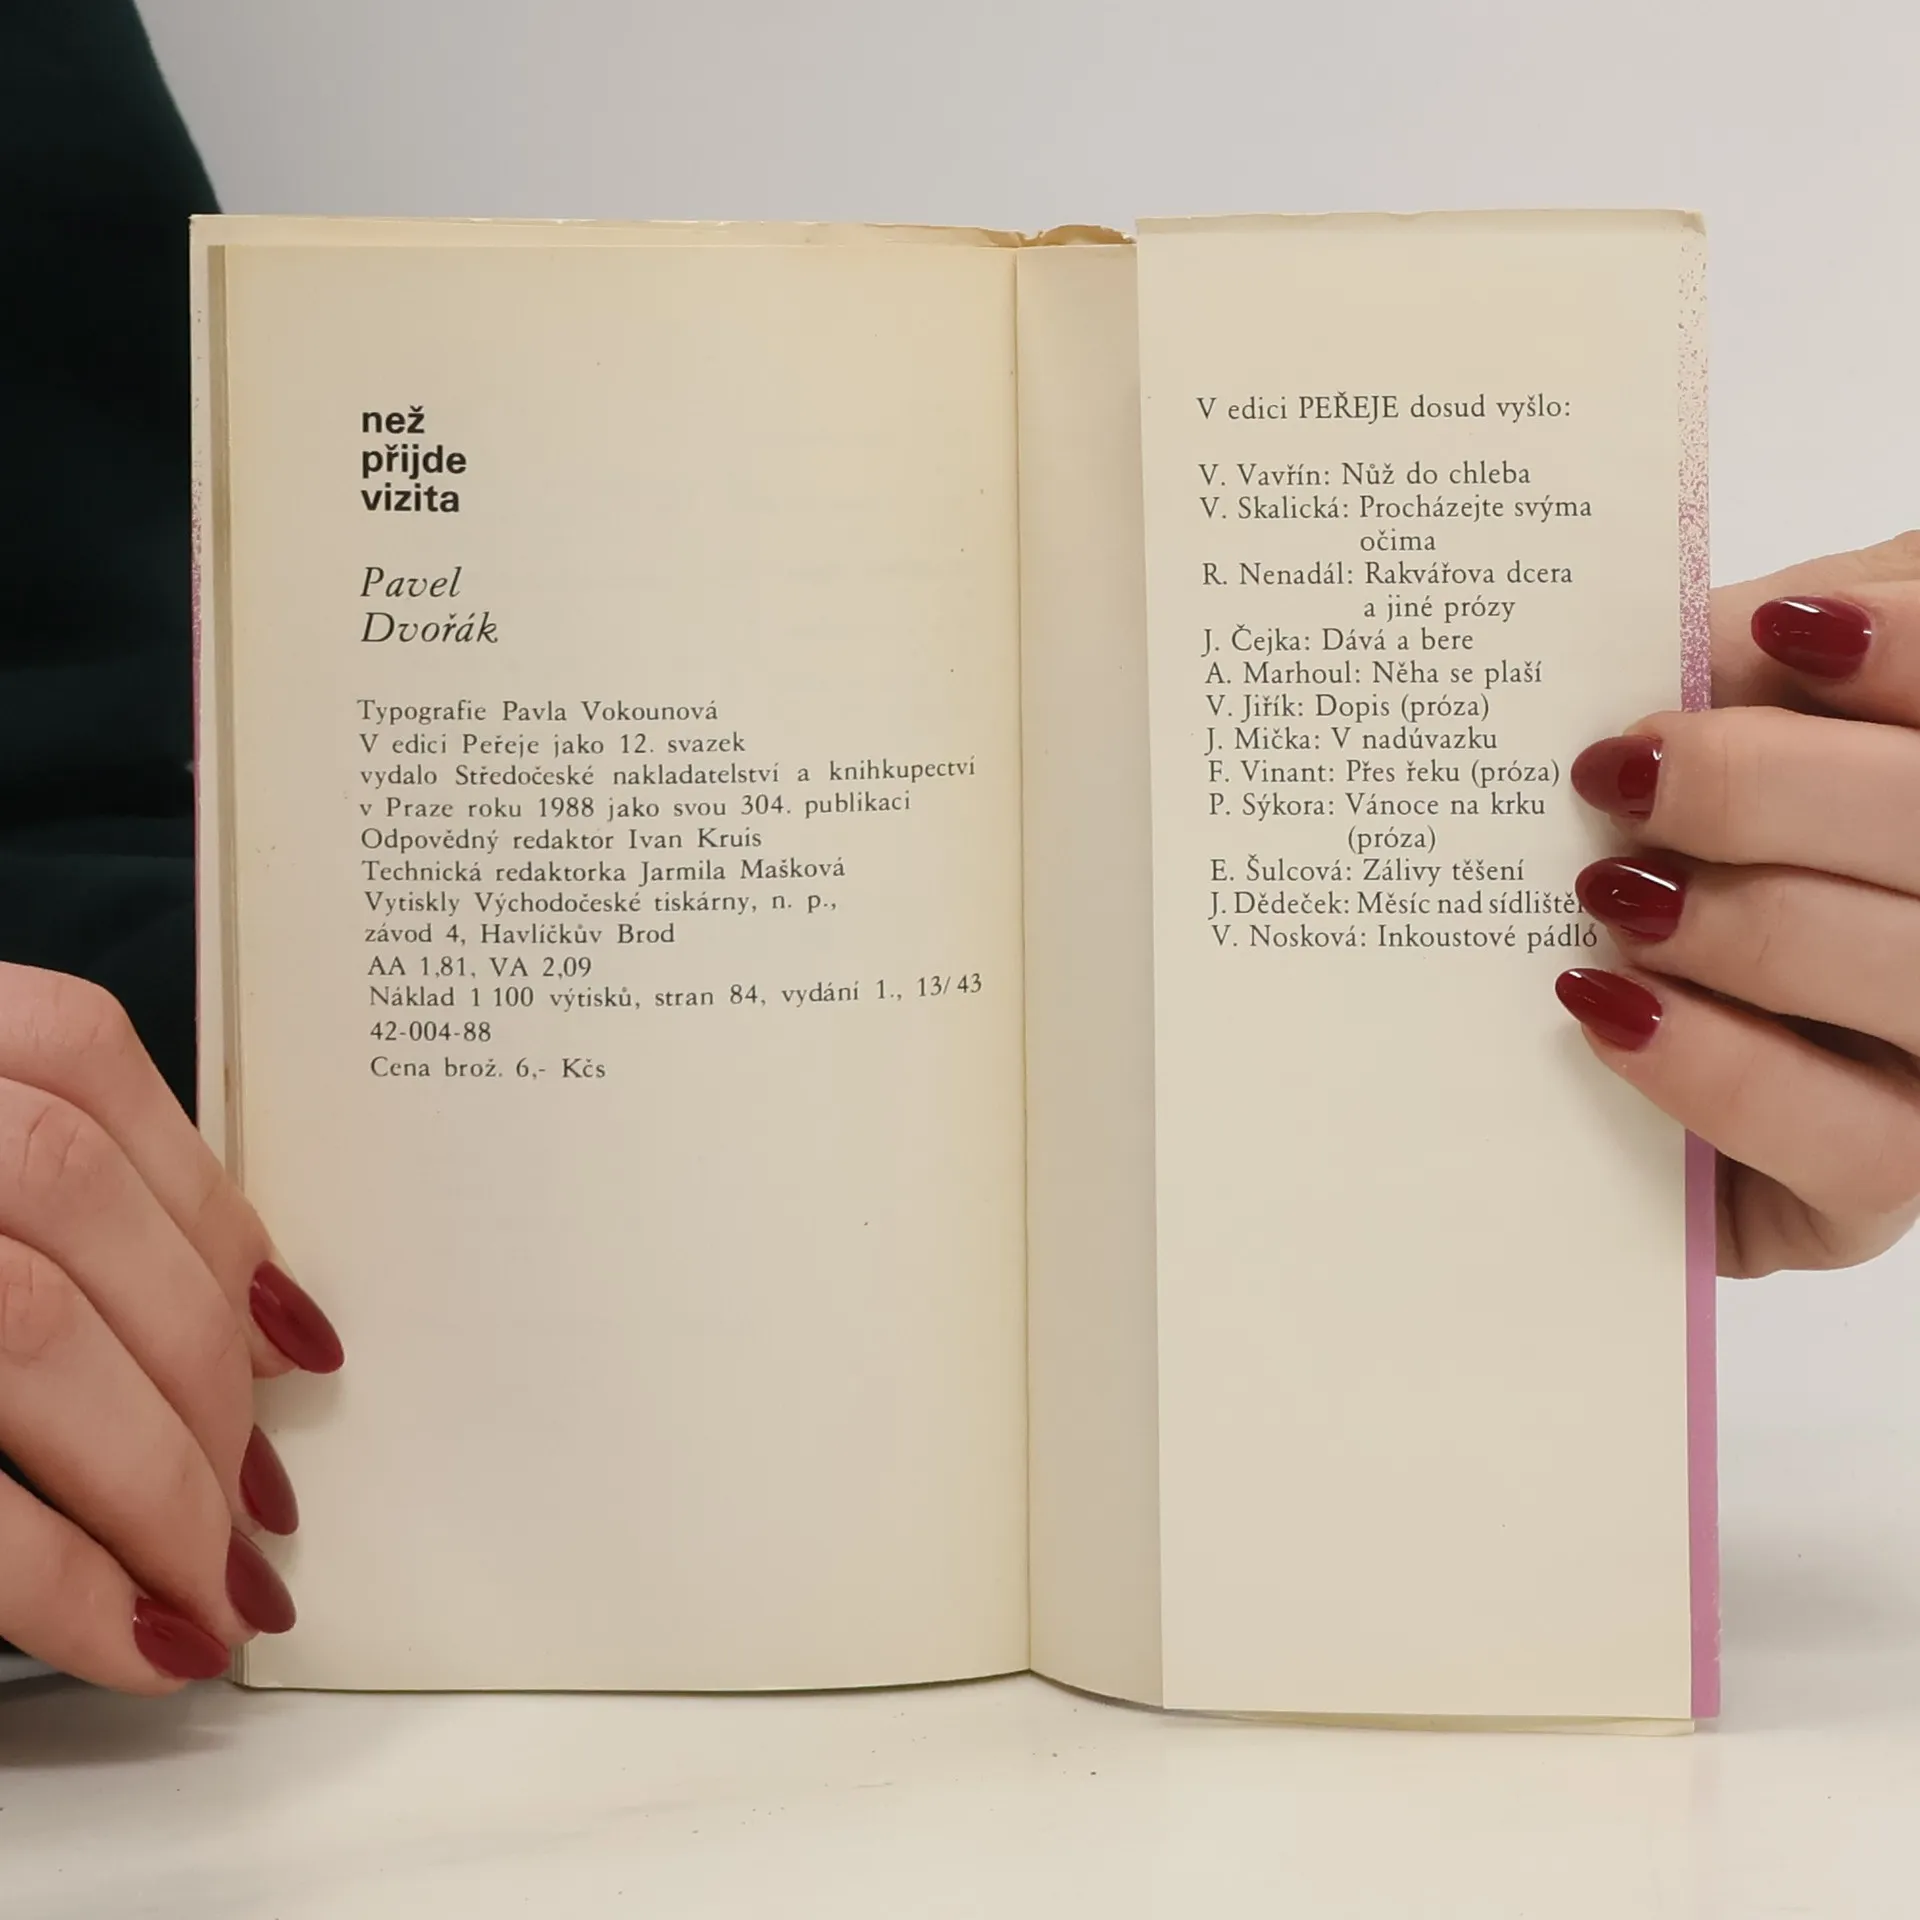 než
přijde
vizita
Pavel
Dvořák
Typografie Pavla Vokounová
V edici Peřeje jako 12. svazek
vydalo Středočeské nakladatelství a knihkupectví
v Praze roku 1988 jako svou 304. publikaci
Odpovědný redaktor Ivan Kruis
Technická redaktorka Jarmila Mašková
Vytiskly Východočeské tiskárny, n. p.,
závod 4, Havlíčkův Brod
AA 1,81, VA 2,09
Náklad 1 100 výtisků, stran 84, vydání 1., 13/43
42-004-88
Cena brož. 6,- Kčs
V edici PEŘEJE dosud vyšlo:
V. Vavřín: Nůž do chleba
V. Skalická: Procházejte svýma
očima
R. Nenadál: Rakvářova dcera
a jiné prózy
J. Čejka: Dává a bere
A. Marhoul: Něha se plaší
V. Jiřík: Dopis (próza)
J. Mička: V nadúvazku
F. Vinant: Přes řeku (próza)
P. Sýkora: Vánoce na krku
(próza)
E. Šulcová: Zálivy těšení
J. Dědeček: Měsíc nad sídliště
V. Nosková: Inkoustové pádlo